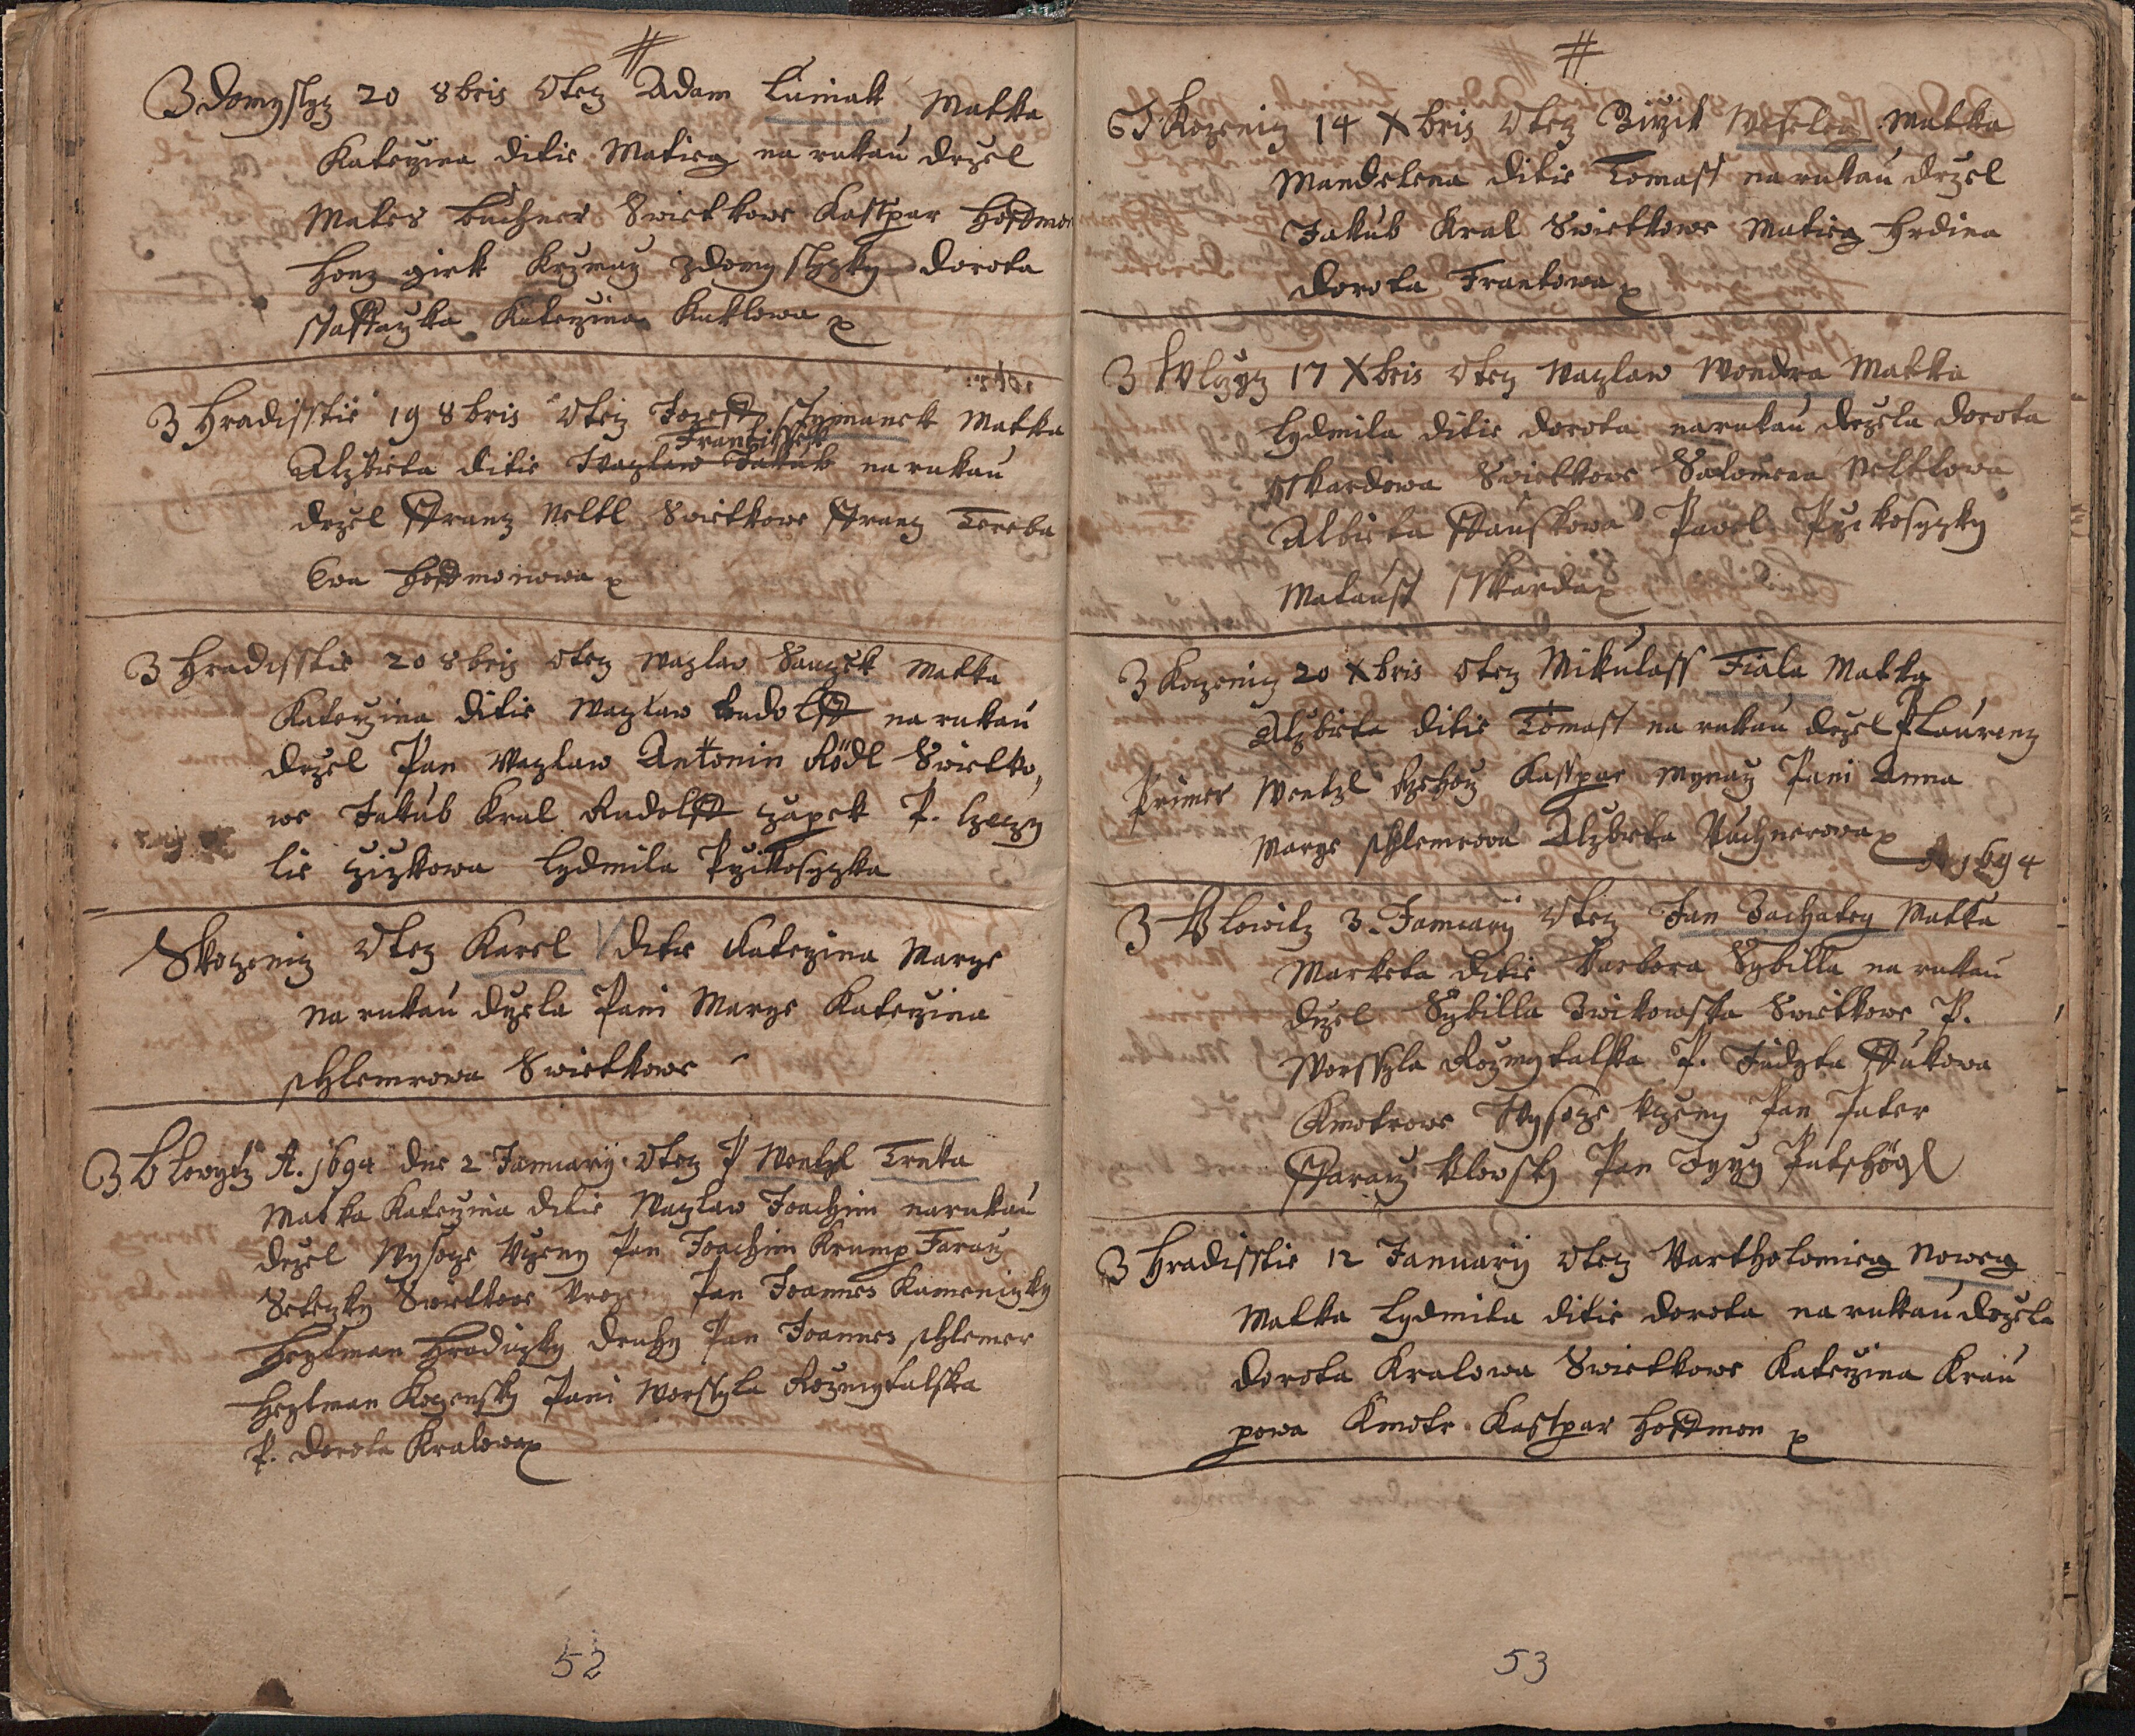 #
Zdomyslyz 20 8bris Otecz Adam Lumak Matka
Katerzina ditie Matieg na rukau drzel
Mates Buchner Swietkowe Kasspar Hoffmon
Honz girk Krzmaz zdomyslyzky Dorota
Katerzina Kuklowa
3 Hradisstie 19 8bris Otecz Jozeff Ssymanek Matka
Frantissek
Alzbieta ditie Wazlaw Jakub na rukau
drzel Frantz Neltl Swietkowe Frantz Tereba
Eva Hoffmonowa
3 Hradisstie 20 8bris Otecz Wazlaw Sauczek Matka
Katerzina ditie Wazlaw Rudolff na rukau
drzel Pan Wazlaw Antonin Rödl Swietko,
we Jakub Kral Rudolff Czapek P.
Lydmila
Skozeniz Otecz Karel ditie Katerzina Marye
na rukau drzela Pani Marye Katerzina
Schlemrowa Swietkowe
3 Blowytz A. 1694 die 2 January Otecz P Wentzl Trnka
Matka Katerzina ditie Wazlaw Joachim na rukau
drzel Wysoze Uczeny Pan Joachim Krump Faraz
Setezky Swietkowe Pan Joannes Kamenizky
Heytman Hradizky druhy Pan Joannes Schlemer
Heytman Kozensky Pani Worssyla Rozmytalska
P. Dorota Kralowa
52
#
Kozeniz 14 Xbris Otecz Wesely Matka
Mandelena ditie Tomass na rukau drzel
Jakub Kral Swietkowe Matieg Hrdina
Dorota Frantowa
3 Wlczyz 17 Xbris Otecz Wazlaw Wondra Matka
Lydmila ditie Dorota na rukau drzela Dorota
Sskardowa Swietkowe Salomena Neltlowa
Albieta Pawel
Matauss Sskarda
3 Kozeniz 20 Xbris Otecz Mikulass Fiala Matka
Alzbieta ditie Tomass na rukau drzel P Laurenz
Primes Wentzl Kasspar Mynarz Pani Anna
Marye Schlemrowa Alzbieta Puchnerowa
A 1694
3 Blowitz 3. January Otecz Jan Zachateg Matka
Marketa ditie Barbora Sybilla na rukau
drzel Sybilla Zwikowska Swietkowe P.
Worssyla Rozmytalska P. Judyta
Kmotrowe Wysoze Uczeny Pan Pater
Ffararz Blowsky Pan
3 Hradisstie 12 January Otecz Bartholomieg Noweg
Matka Lydmila ditie Dorota na rukau drzela
Dorota Kralowa Swietkowe Katerzina Krau
powa Kmotr Kasspar Hoffmon
53